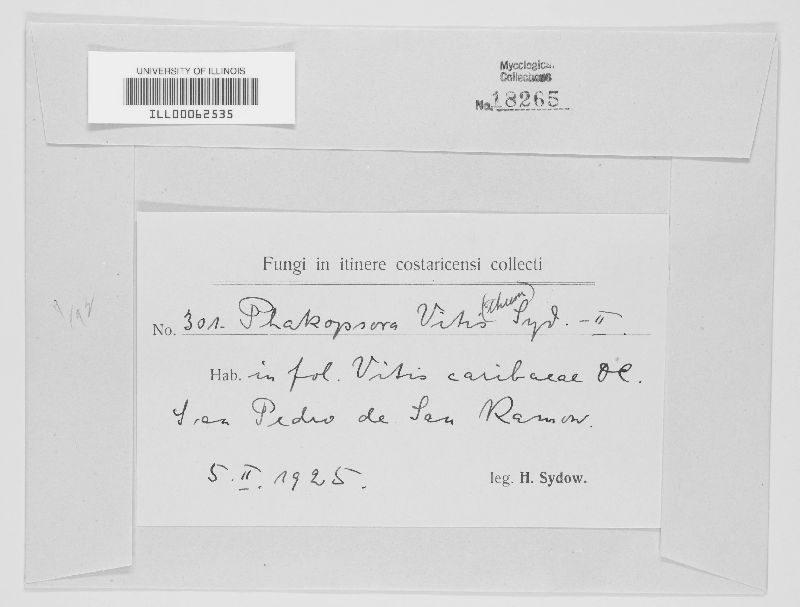 UNIVERSITY OF ILLINOIS
ILL00062535
Mycological
Collections
No. 18265
Fungi in itinere costaricensi collecti
No. 301. Phakopsora Vitis (Thüm) Syd. - II.
Hab. in fol. Vitis caribaeae DC.
San Pedro de San Ramon.
5. II. 1925.
leg. H. Sydow.